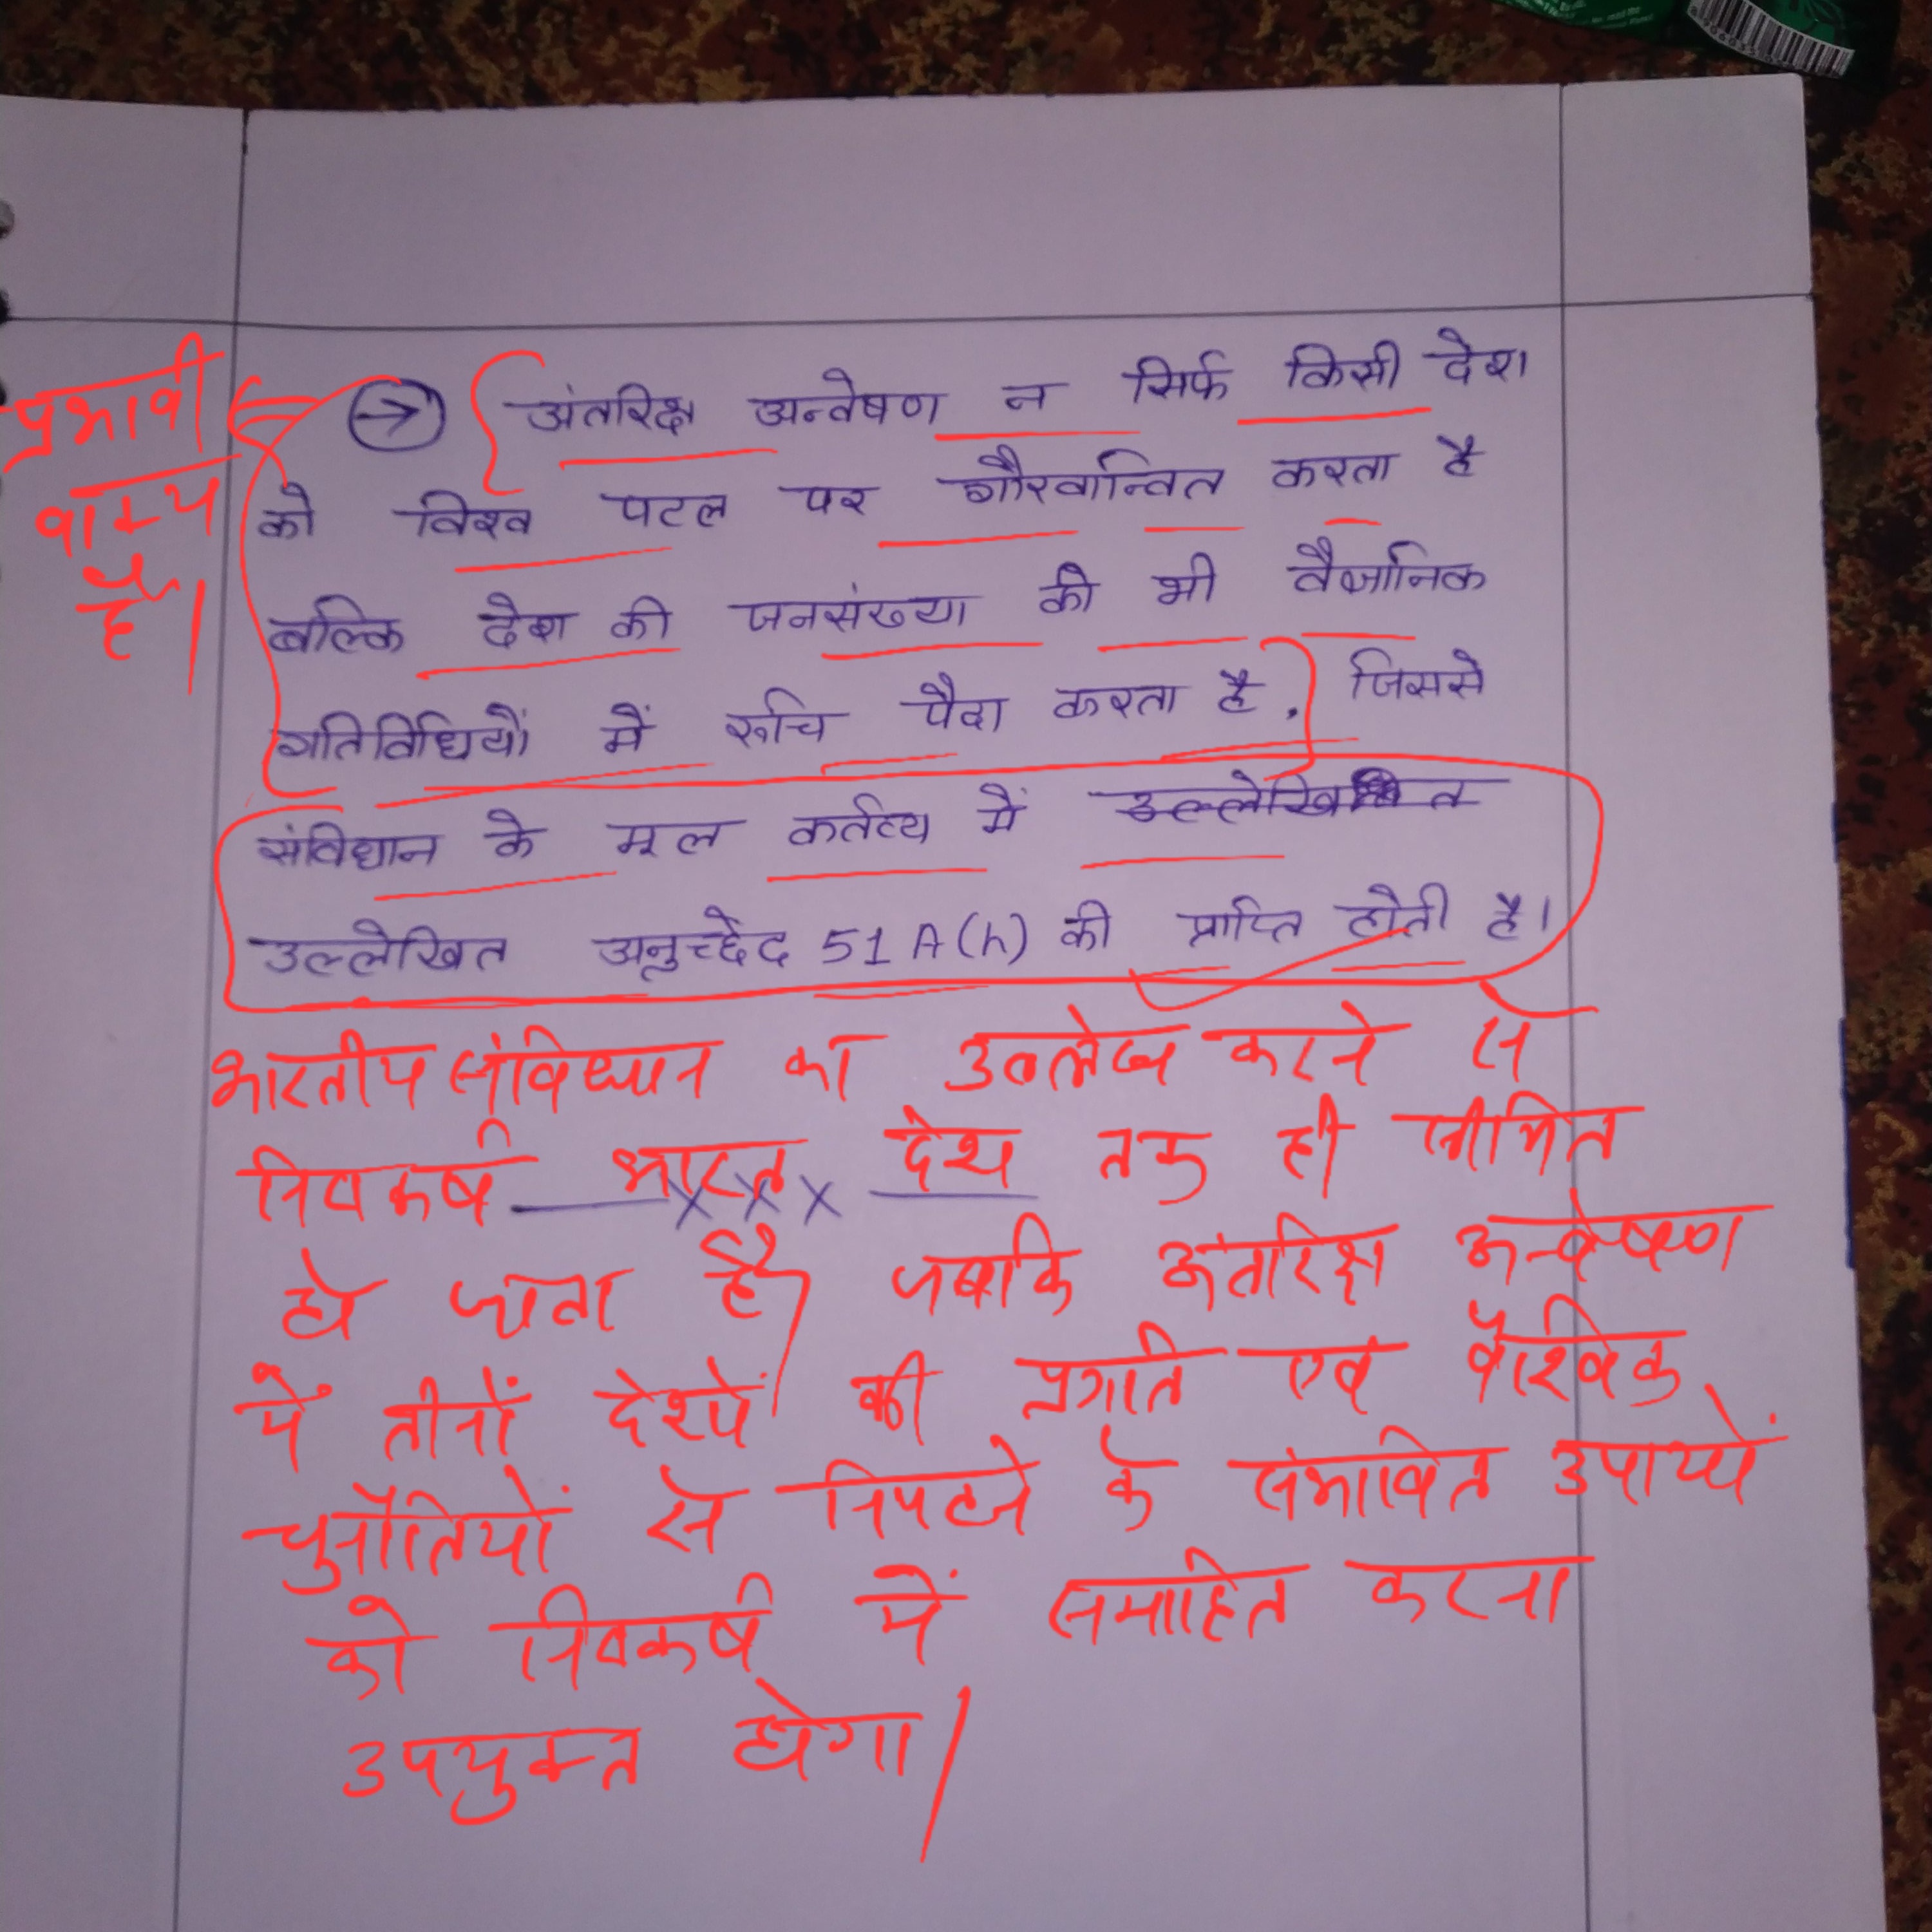 प्रभावी
वाक्य
है।
→ अंतरिक्ष अन्वेषण न सिर्फ किसी देश
को विश्व पटल पर गौरवान्वित करता है
बल्कि देश की जनसंख्या की भी वैज्ञानिक
गतिविधियों में रुचि पैदा करता है, जिससे
संविधान के मूल कर्तव्य में उल्लेखित
उल्लेखित अनुच्छेद 51A(h) की प्राप्ति होती है।
भारतीय संविधान का उल्लेख करने से
निष्कर्ष भारत देश तक ही सीमित
हो जाता है। जबकि अंतरिक्ष अन्वेषण
में तीनों देशों की प्रगति एवं वैश्विक
चुनौतियों से निपटने के संभावित उपायों
को निष्कर्ष में समाहित करना
उपयुक्त होगा।